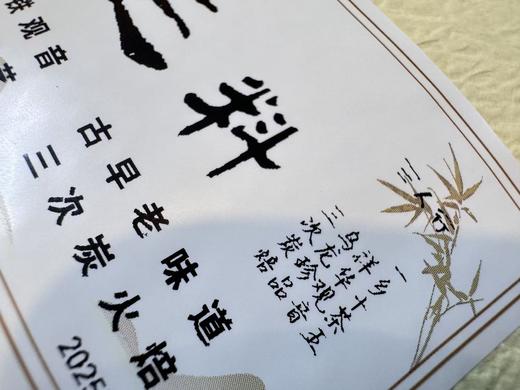 料
铁观音
古早老味道
三次炭火焙
2025
三人行
一乡十茶王
祥华观音
乌龙珍品
三次炭焙